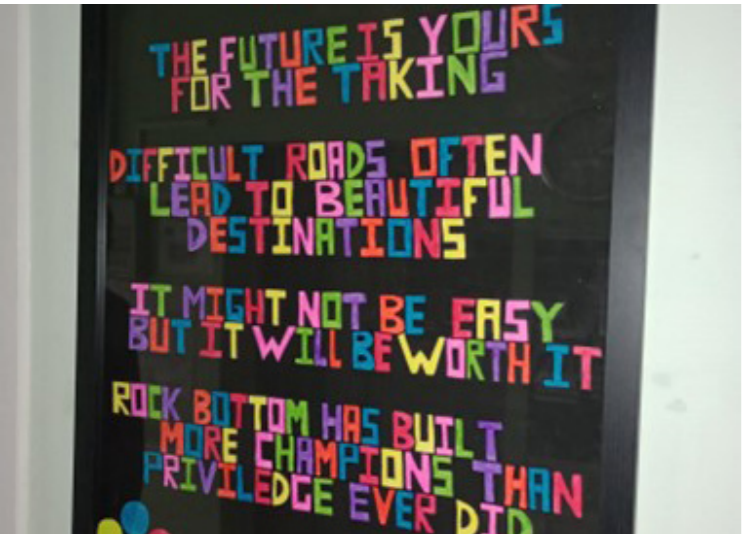 THE FUTURE IS YOURS
FOR THE TAKING
DIFFICULT ROADS OFTEN
LEAD TO BEAUTIFUL
DESTINATIONS
IT MIGHT NOT BE EASY
BUT IT WILL BE WORTH IT
ROCK BOTTOM HAS BUILT
MORE CHAMPIONS THAN
PRIVILEDGE EVER DID